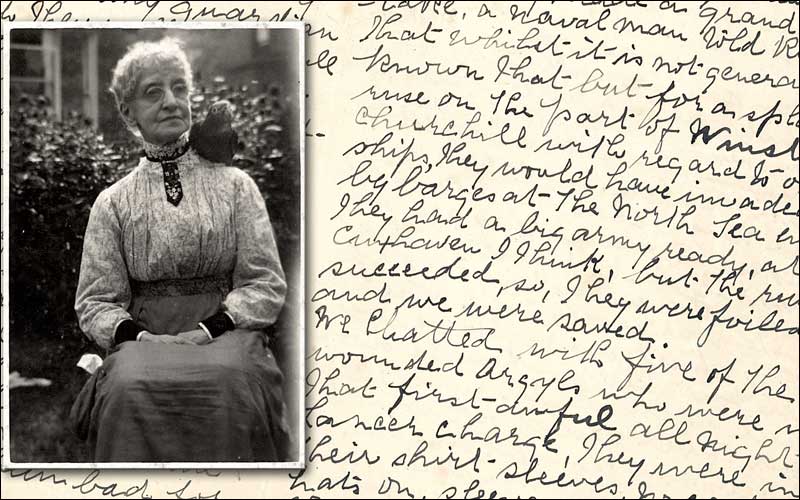 a grand
a naval man told
That whilst it is not genera
known that but for a spl
ruse on the part of Winst
Churchill with regard to o
ships, they would have invade
by barges at the North Sea en
They had a big army ready, at
Cuxhaven I think, but the ru
succeeded, so, they were foiled
and we were saved.
We chatted with five of the
wounded Argyls who were
That first awful all night
Lancer charge, they were in
their shirt-sleeves,
hats on, sleeve